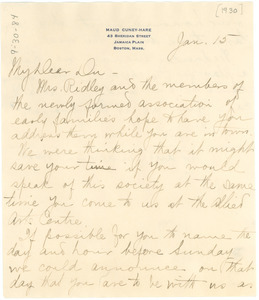 MAUD CUNEY-HARE
43 SHERIDAN STREET
JAMAICA PLAIN
BOSTON, MASS.
[1930]
9-30-84
Jan. 15
My dear Du -
Mrs. Ridley and the members of
the newly formed association of
early families hope to have you
address them while you are in town.
We were thinking that it might
save your time if you would
speak of this society at the same
time you come to us at the Allied
Art Centre.
If possible for you to name the
day and hour before Sunday
we could announce on that
day that you are to be with us a.